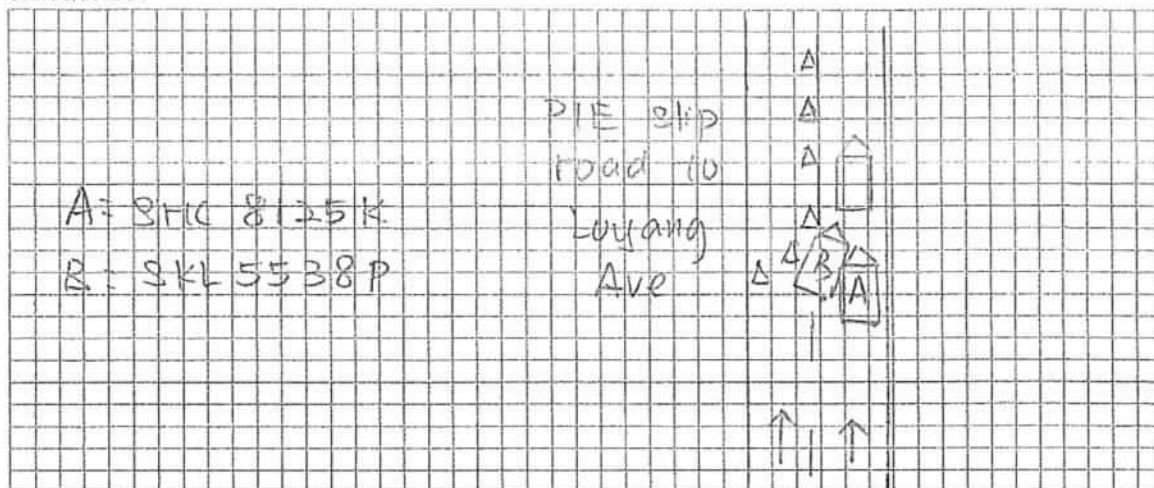 A= SHC 8125K
B= SKL 5538P
PIE slip
road to
Loyang
Ave
B
A